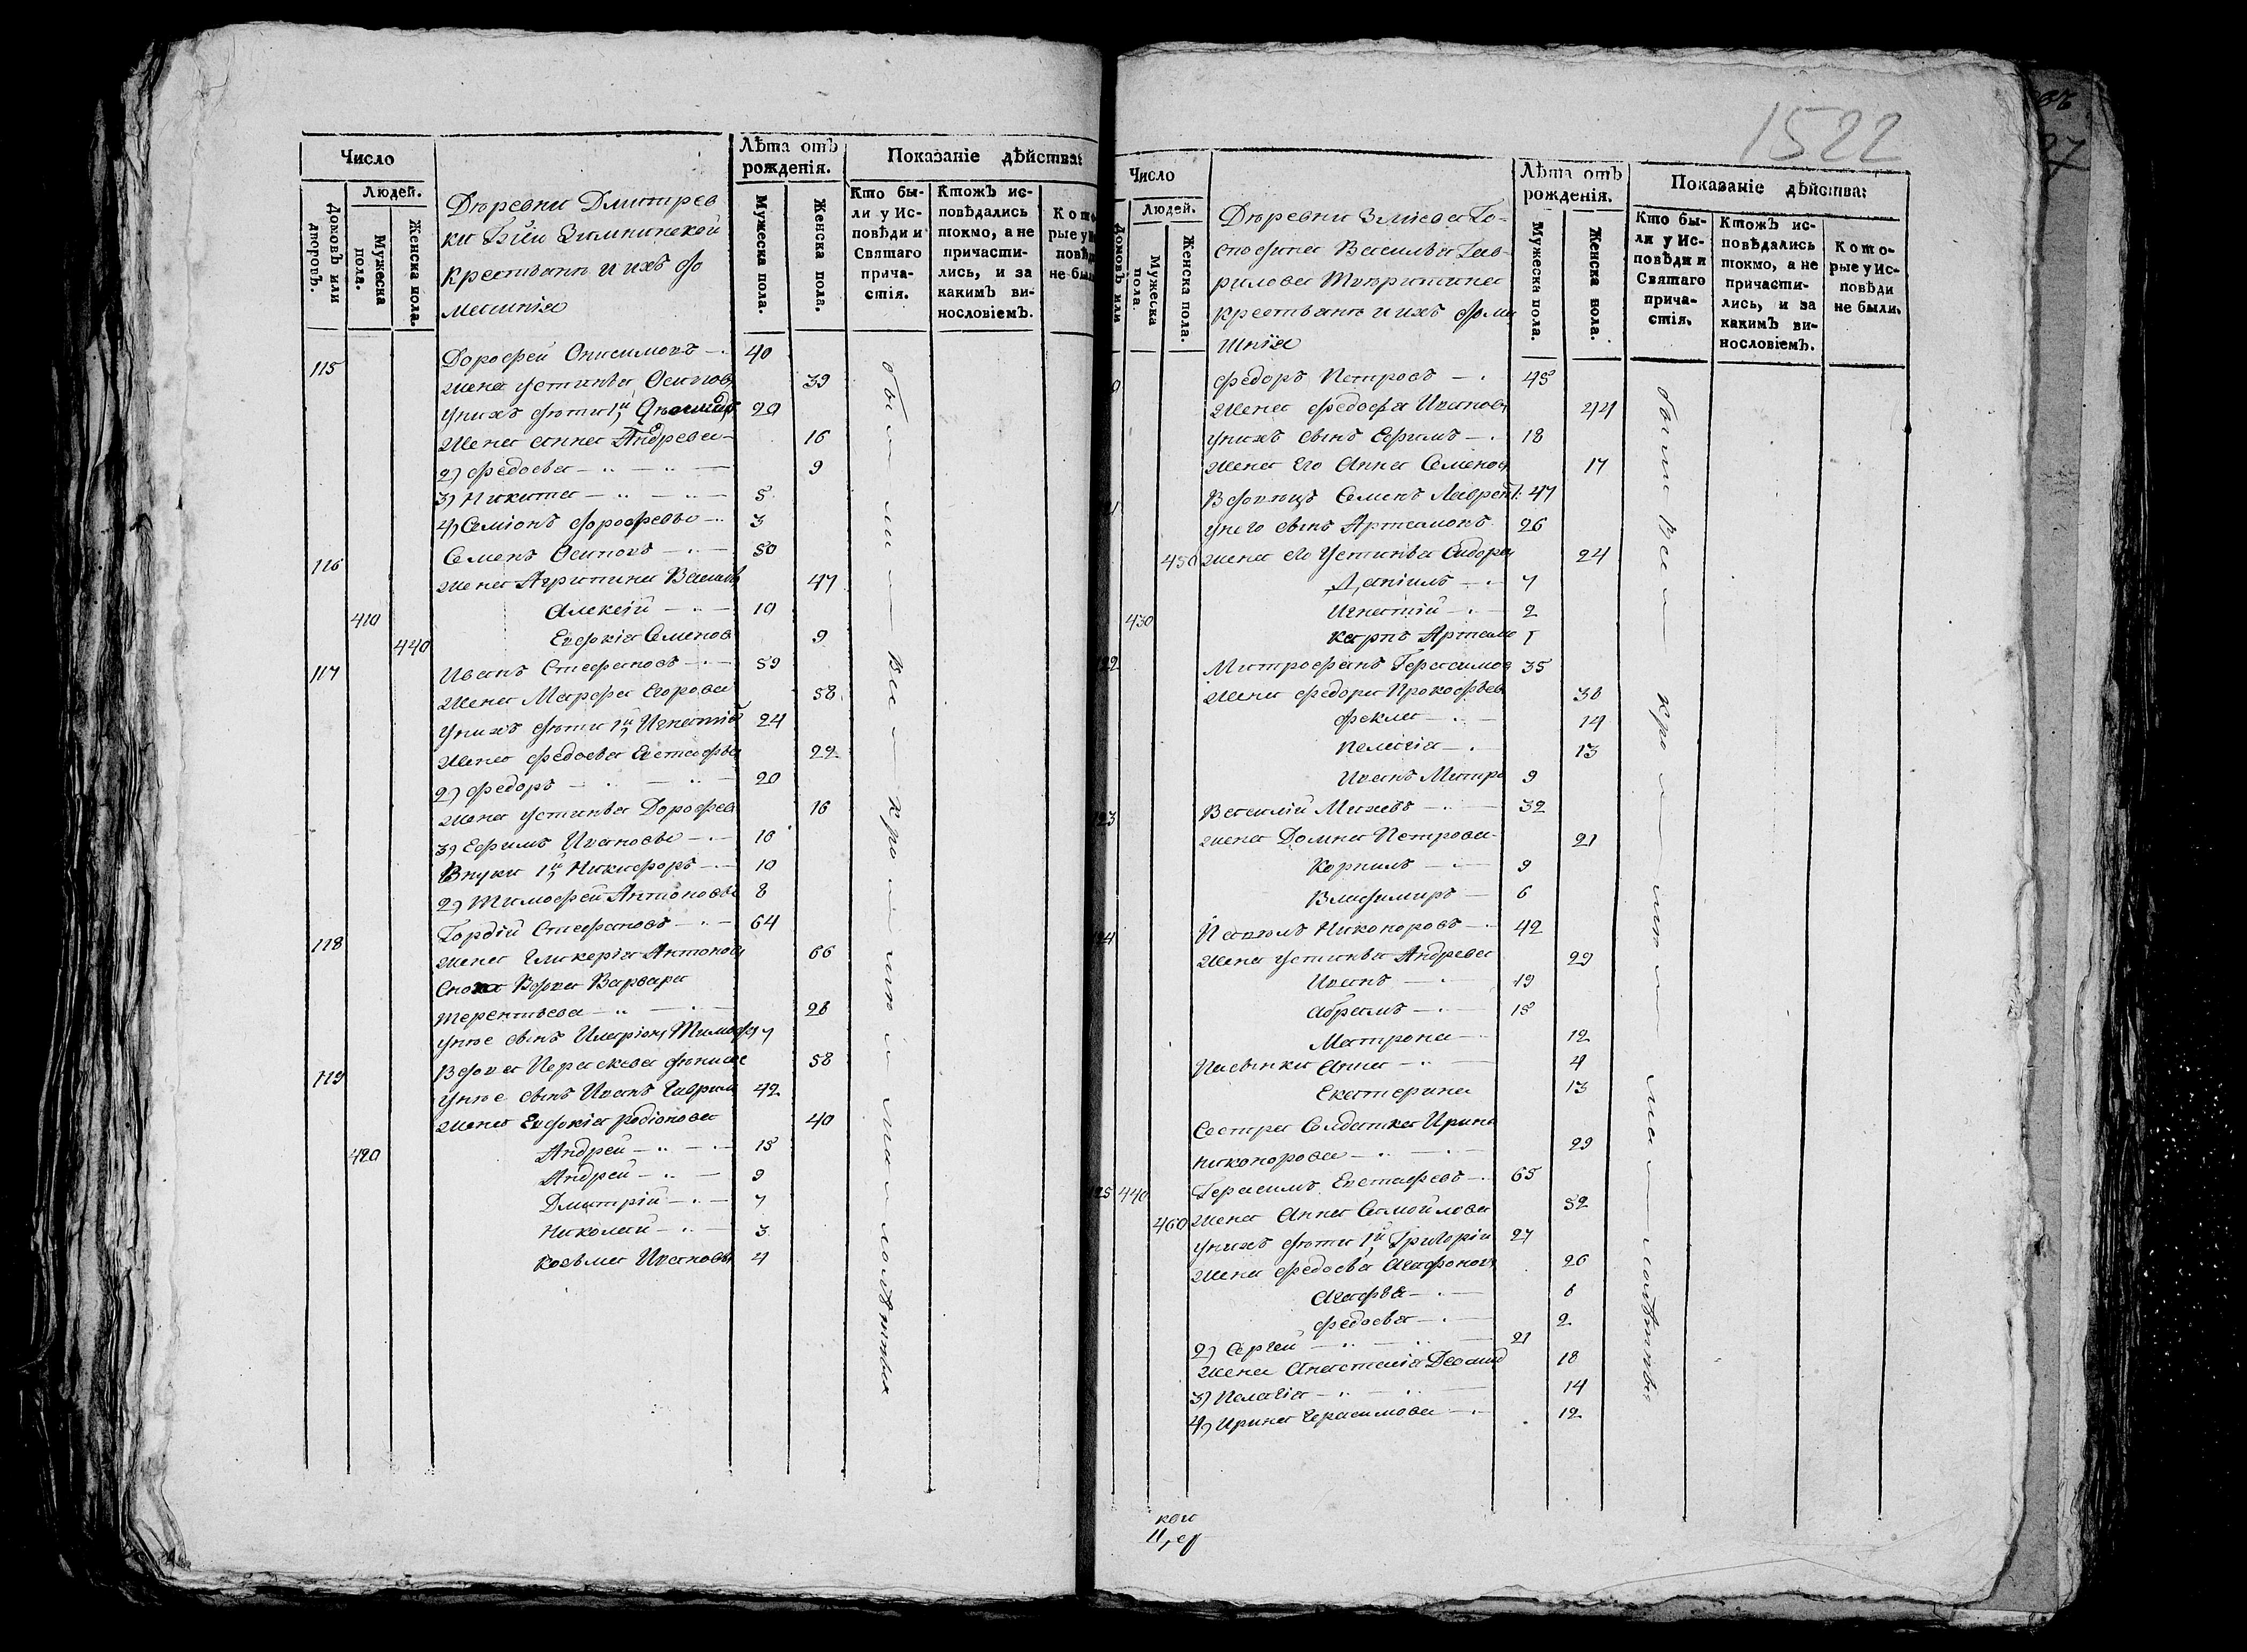 Число
Людей.
Домовъ или дворовъ.
Мужеска пола.
Женска пола.
Деревни Дмитрев
ки Зимнинской
крестьяне и ихъ до
машнія
Лѣта отъ рожденія.
Мужеска пола.
Женска пола.
Показаніе дѣйства:
Кто бы-
ли у Ис-
повѣди и
Святаго
прича-
стія.
Ктожъ ис-
повѣдались
токмо, а не
причасти-
лись, и за
какимъ ви-
нословіемъ.
115 Дорофей Онисимовъ 40
жена Устинья Осипов 39
у нихъ дѣти 1й 20
жена Анна Андреева 16
2) Федосья 9
3) Никита 5
4) Семіонъ Дорофеевы 3
116 Семенъ Осиповъ 50
жена Агрипина Васильв 47
410 Алексій 10
440 Евдокія Семенов 9
117 Иванъ Стефановъ 59
жена Марфа Егорова 58
у нихъ дѣти 1й Игнатій 24
жена Федосья Евстафьв 22
2) Федоръ 20
жена Устинья Дорофев 16
3) Ефримъ Ивановы 10
Внуки 1й Никифоръ 10
2) Тимофей Антоновы 8
118 Гордій Стефановъ 64
жена Гликерія Антонов 66
Сноха Вдова Варвара
Терентьева 26
у нее сынъ Иларіонъ Тимоф 7
119 Вдова Параскева 58
у нее сынъ Иванъ Гаврил 42
жена Евдокія Родіонова 40
420 Андрей 15
Андрей 9
Дмитрій 7
Николай 3
Козьма Ивановы 4
были Вси кро мѣ ма лолѣтныхъ
1522
Число
Людей.
Домовъ или
Мужеска пола.
Женска пола.
Деревни Змѣева Го-
сподина Василья Гав-
рилова
крестьяне и ихъ дома
шнія
Лѣта отъ рожденія.
Мужеска пола.
Женска пола.
Показаніе дѣйства:
Кто бы-
ли у Ис-
повѣди и
Святаго
прича-
стія.
Ктожъ ис-
повѣдались
токмо, а не
причасти-
лись, и за
какимъ ви-
нословіемъ.
Кото-
рые у Ис-
повѣди
не были.
0 Федоръ Петровъ 45
жена Федосья Иванов 44
у нихъ сынъ Ефримъ 18
жена его Анна Семенов 17
Вдовецъ Семенъ Лаврент: 47
у него сынъ Артамонъ 26
450 жена его Устинья Сидоров 24
Даніилъ 7
430 Игнатій 2
Карпъ Артамо 1
122 Митрофанъ Герасимов 35
жена Федора Прокофьев 36
Фекла 14
Пелагія 13
Иванъ Митро 9
123 Василій Михеевъ 32
жена Домна Петрова 21
Корнилъ 9
Владимиръ 6
124 Павелъ Никоноровъ 42
жена Устинья Андреева 29
Иванъ 19
Абрамъ 15
Матрона 12
Анна 4
Екатерина 13
Сестра Солдатка Ирина
Никонорова 29
125 440 Герасимъ Евстафевъ 65
460 жена Анна Самойлова 52
у нихъ дѣти 1й Григорій 27
жена Федосья Агафонов 26
Агафья 6
Федосья 2
2) Сергей 21
жена Анастасія 18
3) Пелагія 14
4) Ирина Герасимова 12
были Вси кро мѣ ма лолѣтныхъ